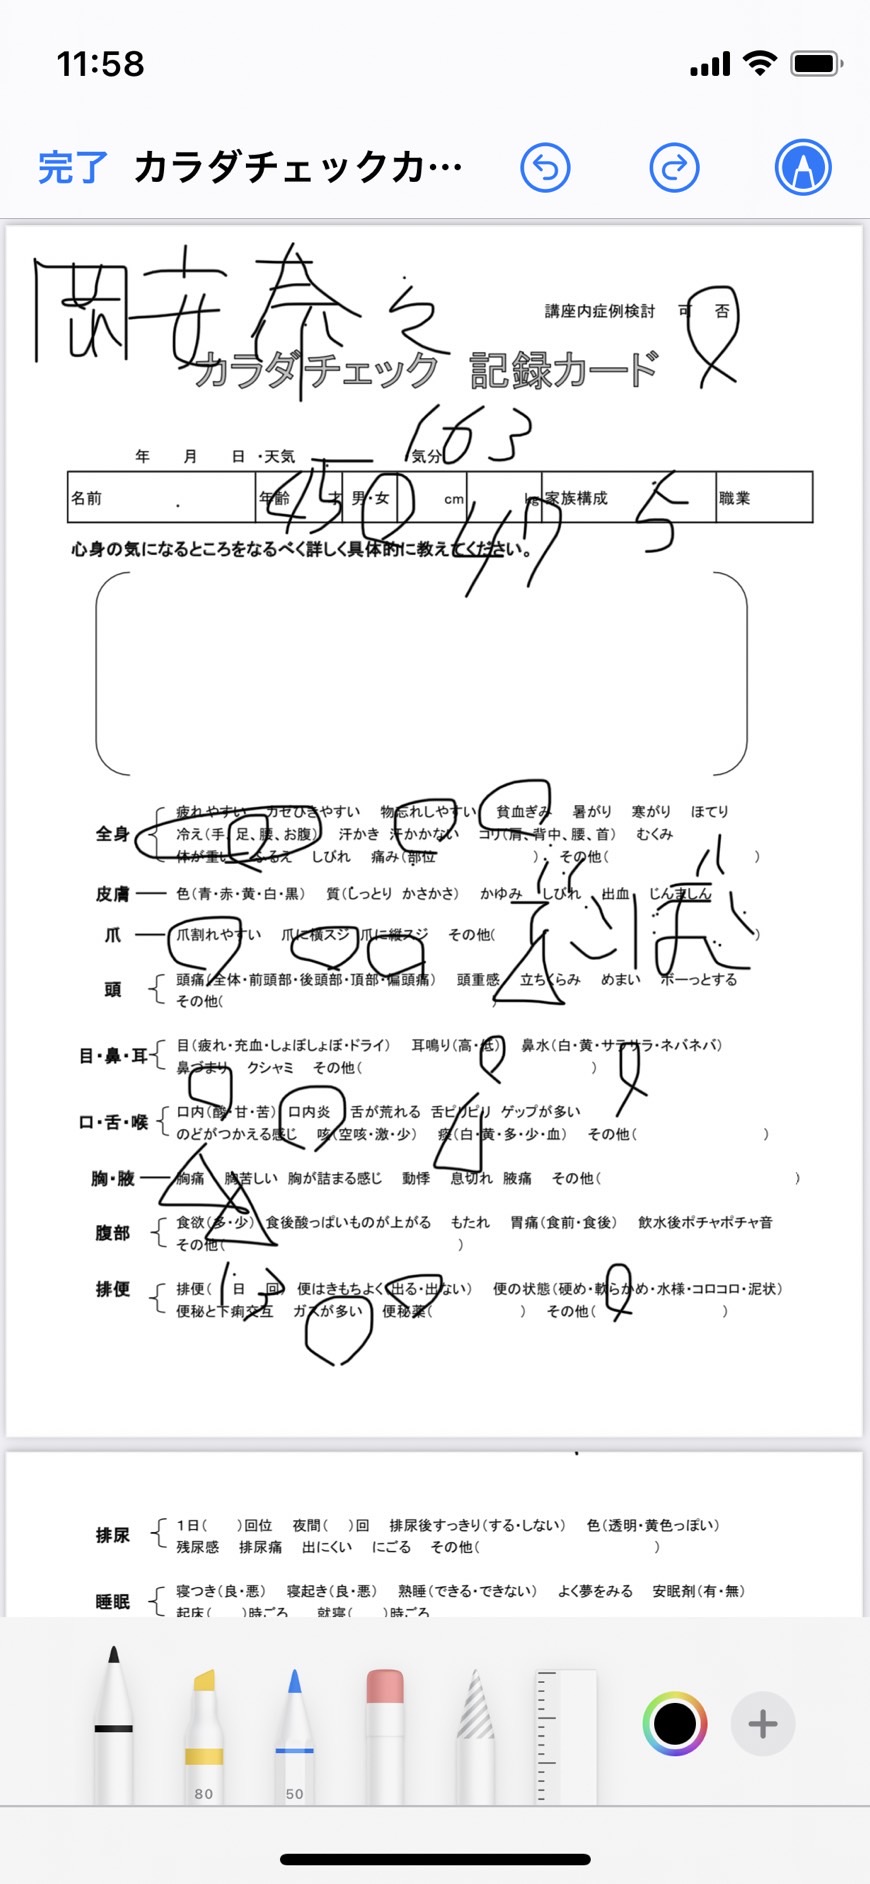 11:58
完了 カラダチェックカ…
関安奈之
講座内症例検討 可 否
カラダチェック 記録カード
163
年 月 日 ・天気 気分
名前 年齢 45 才 男・女 cm 47 kg 家族構成 5 職業
心身の気になるところをなるべく詳しく具体的に教えてください。
全身
疲れやすい カゼひきやすい 物忘れしやすい 貧血ぎみ 暑がり 寒がり ほてり
冷え(手、足、腰、お腹) 汗かき 汗かかない コリ(肩、背中、腰、首) むくみ
体が重い ふるえ しびれ 痛み(部位 ) その他( )
皮膚 色(青・赤・黄・白・黒) 質(しっとり かさかさ) かゆみ しびれ 出血 じんましん
爪 爪割れやすい 爪に横スジ 爪に縦スジ その他( )
頭
頭痛(全体・前頭部・後頭部・頂部・偏頭痛) 頭重感 立ちくらみ めまい ボーっとする
その他(
目・鼻・耳
目(疲れ・充血・しょぼしょぼ・ドライ) 耳鳴り(高・低) 鼻水(白・黄・サラサラ・ネバネバ)
鼻づまり クシャミ その他( )
口・舌・喉
口内(酸・甘・苦) 口内炎 舌が荒れる 舌ピリピリ ゲップが多い
のどがつかえる感じ 咳(空咳・激・少) 痰(白・黄・多・少・血) その他( )
胸・腋 胸痛 胸苦しい 胸が詰まる感じ 動悸 息切れ 腋痛 その他( )
腹部
食欲(多・少) 食後酸っぱいものが上がる もたれ 胃痛(食前・食後) 飲水後ポチャポチャ音
その他( )
排便
排便( 1 日 3 回) 便はきもちよく(出る・出ない) 便の状態(硬め・軟らかめ・水様・コロコロ・泥状)
便秘と下痢交互 ガスが多い 便秘薬( ) その他( )
排尿
1日( )回位 夜間( )回 排尿後すっきり(する・しない) 色(透明・黄色っぽい)
残尿感 排尿痛 出にくい にごる その他( )
睡眠
寝つき(良・悪) 寝起き(良・悪) 熟睡(できる・できない) よく夢をみる 安眠剤(有・無)
起床( )時ごろ 就寝( )時ごろ
80 50